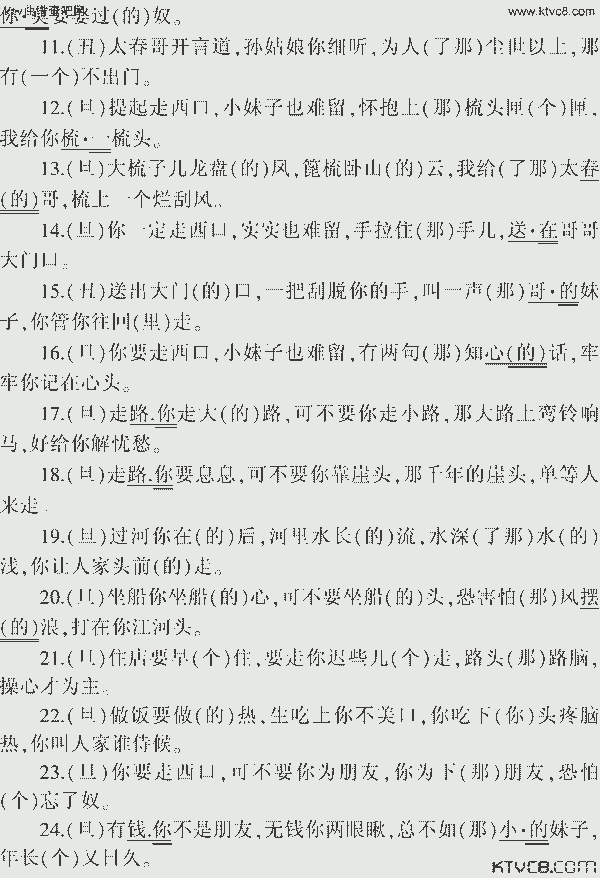 你·哭 要 要过(的)奴。
www.ktvc8.com
11.(丑)太春哥开言道,孙姑娘你细听,为人(了那)尘世以上,那
有(一个)不出门。
12.(旦)提起走西口,小妹子也难留,怀抱上(那)梳头匣(个)匣,
我给你梳·一梳头。
13.(旦)大梳子儿龙盘(的)凤,篦梳卧山(的)云,我给(了那)太春
(的)哥,梳上一个烂刮风。
14.(旦)你一定走西口,实实也难留,手拉住(那)手儿,送·在哥哥
大门口。
15.(丑)送出大门(的)口,一把刮脱你的手,叫一声(那)哥·的妹
子,你管你往回(里)走。
16.(旦)你要走西口,小妹子也难留,有两句(那)知心(的)话,牢
牢你记在心头。
17.(旦)走路.你走大(的)路,可不要你走小路,那大路上弯铃响
马,好给你解忧愁。
18.(旦)走路.你要息息,可不要你靠崖头,那千年的崖头,单等人
来走.
19.(旦)过河你在(的)后,河里水长(的)流,水深(了那)水(的)
浅,你让人家头前(的)走。
20.(旦)坐船你坐船(的)心,可不要坐船(的)头,恐害怕(那)风摆
(的)浪,打在你江河头。
21.(旦)住店要早(个)住,要走你迟些儿(个)走,路头(那)路脑,
操心才为主。
22.(旦)做饭要做(的)热,生吃上你不美口,你吃下(你)头疼脑
热,你叫人家谁侍候。
23.(旦)你要走西口,可不要你为朋友,你为下(那)朋友,恐怕
(个)忘了奴。
24.(旦)有钱.你不是朋友,无钱你两眼瞅,总不如(那)小·的妹子,
年长(个)又日久。
KTVC8.COM